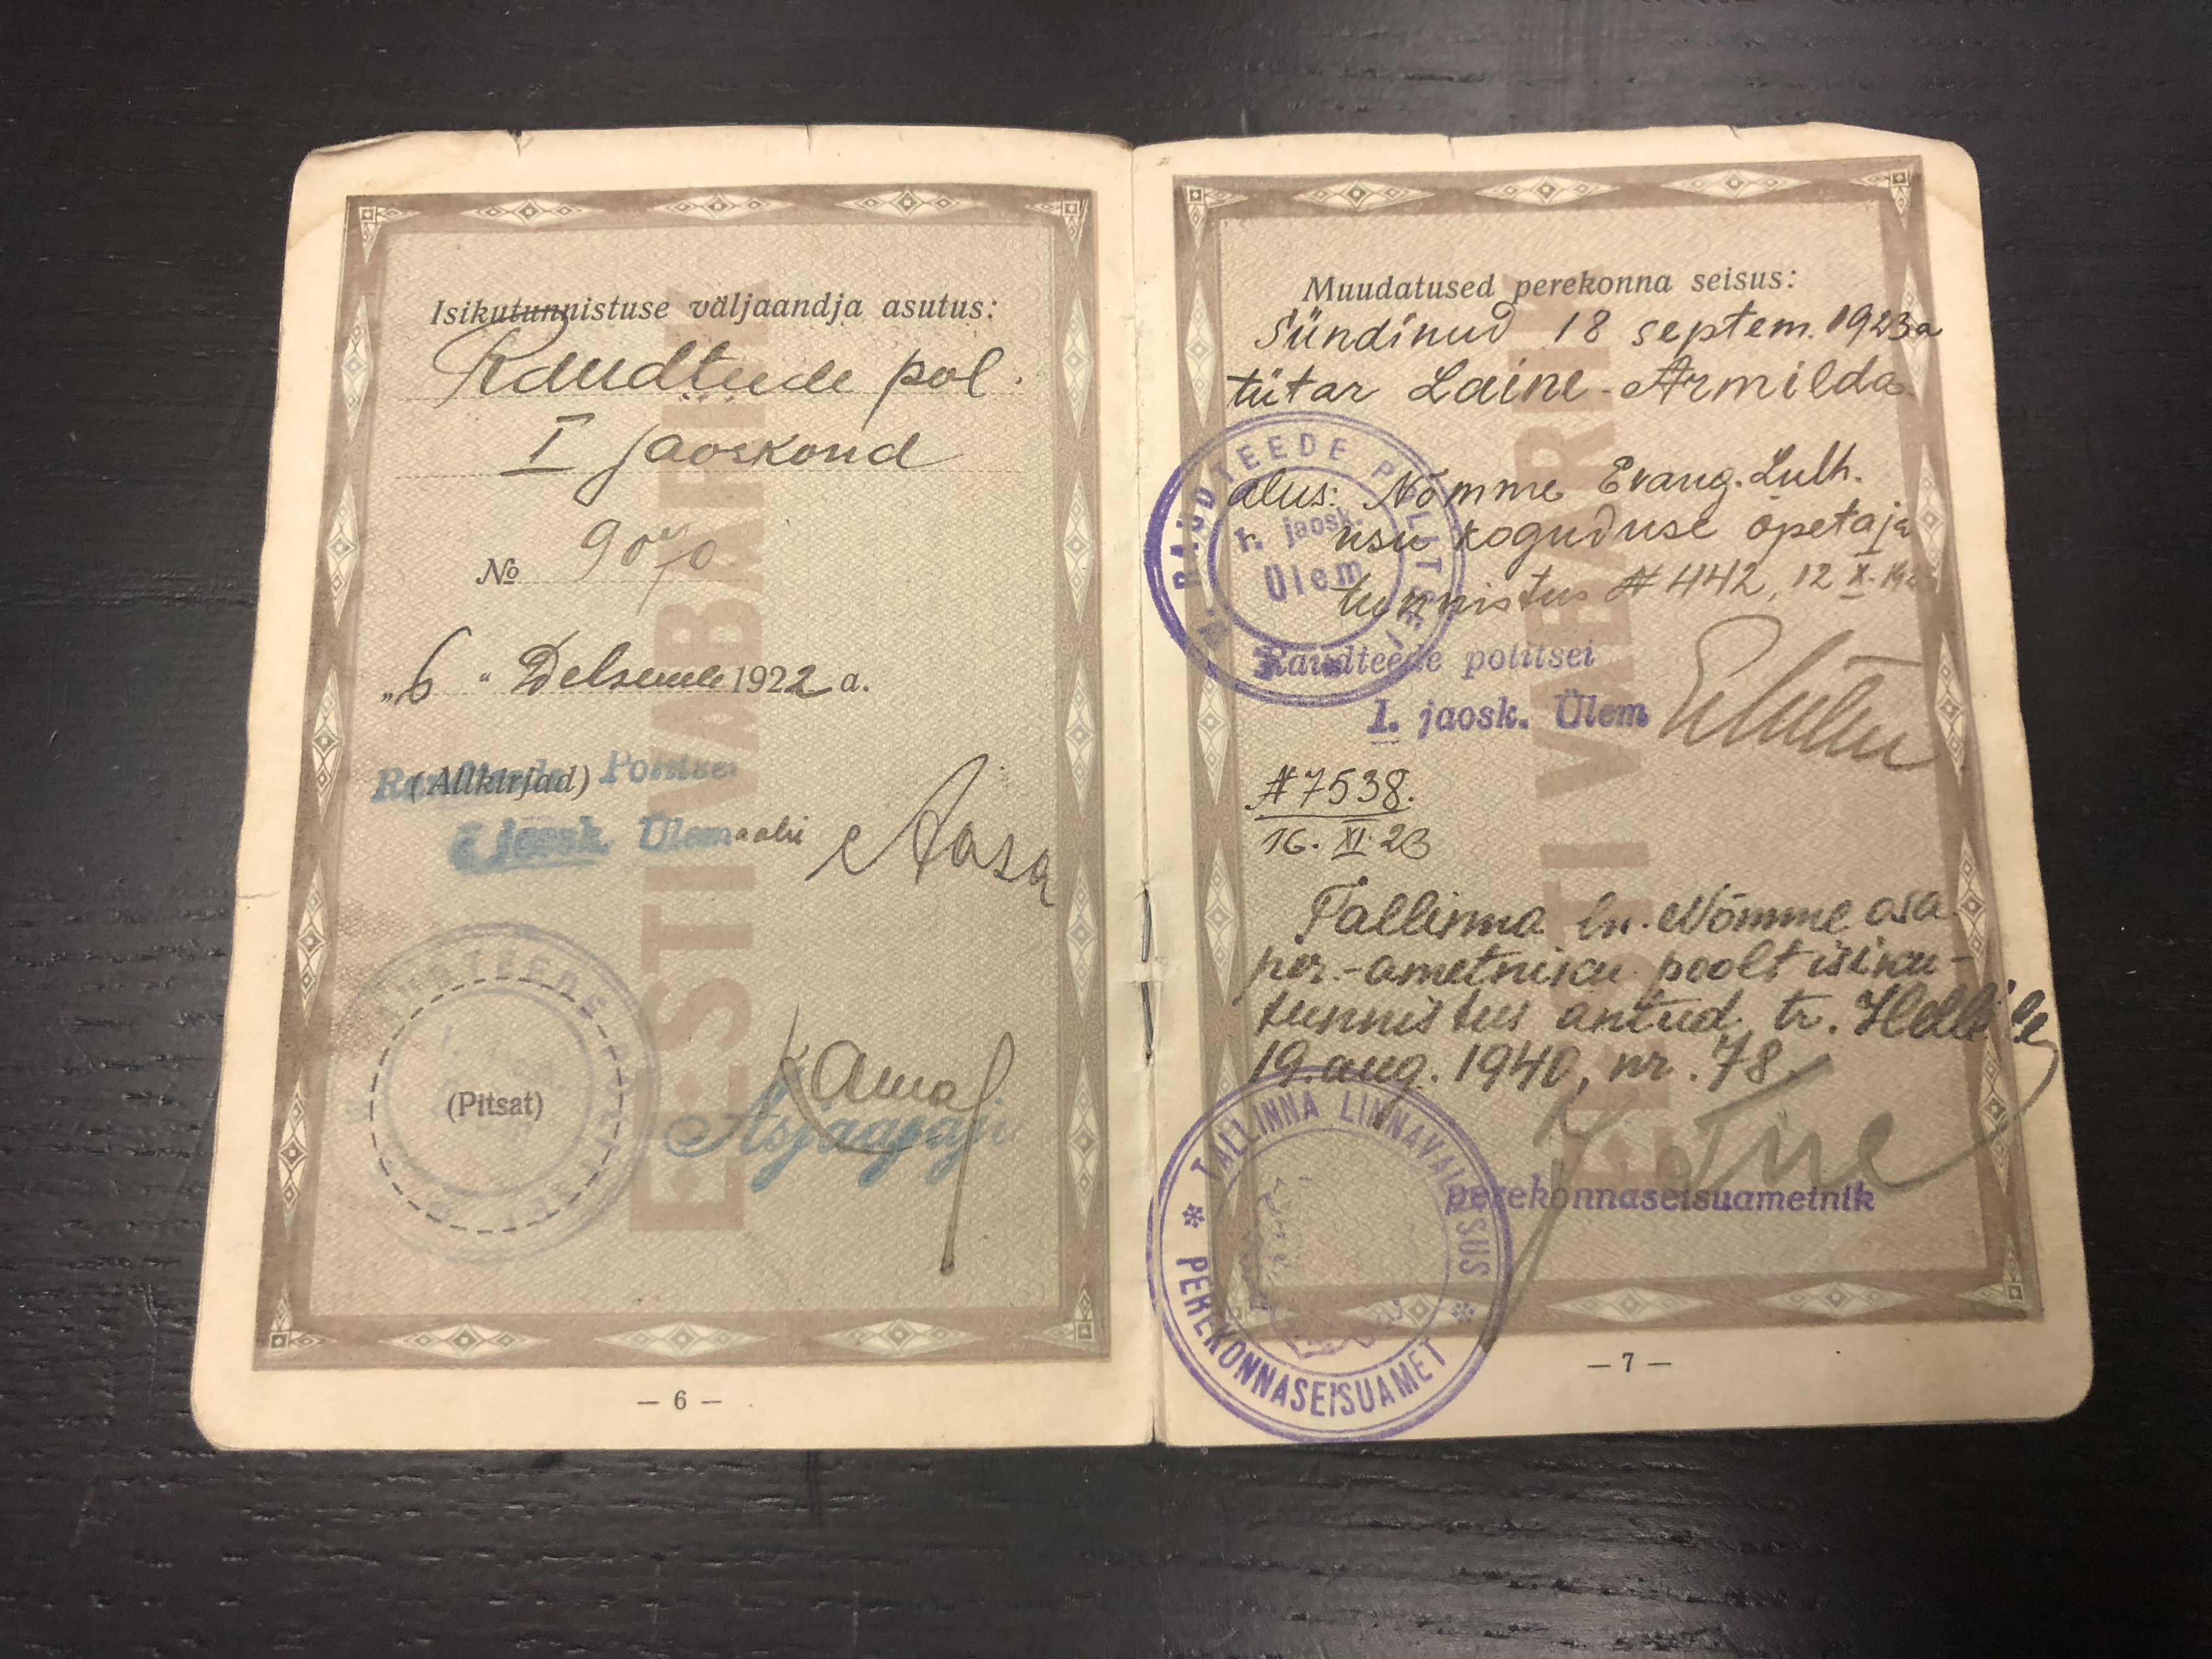 Isikutunnistuse väljaandja asutus:
Raudteede pol.
I jaoskond
№
„6“ Detsembr 1922 a.
(Allkirjad)
Raudteede Politsei
I jaosk. Ülem abi
Aasa
Asjaajaja
(Pitsat)
RAUDTEEDE
EESTI VABARIIK
— 6 —
Muudatused perekonna seisus:
Sündinud 18 septem. 1923 a
tütar Laine-Armilda
alus: Nõmme Evang. Luth.
usu koguduse õpetaja
tunnistus # 442, 12 X.
RAUDTEEDE POLITSEI
1. jaosk.
Ülem
Raudteede politsei
1. jaosk. Ülem
# 7538.
16. XI. 23
Tallinna ln. Nõmme osa
per.-ametniku poolt isiku-
tunnistus antud tr.
19. aug. 1940, nr. 78.
perekonnaseisuametnik
TALLINNA LINNAVALITSUS
PEREKONNASEISUAMET
EESTI VABARIIK
— 7 —